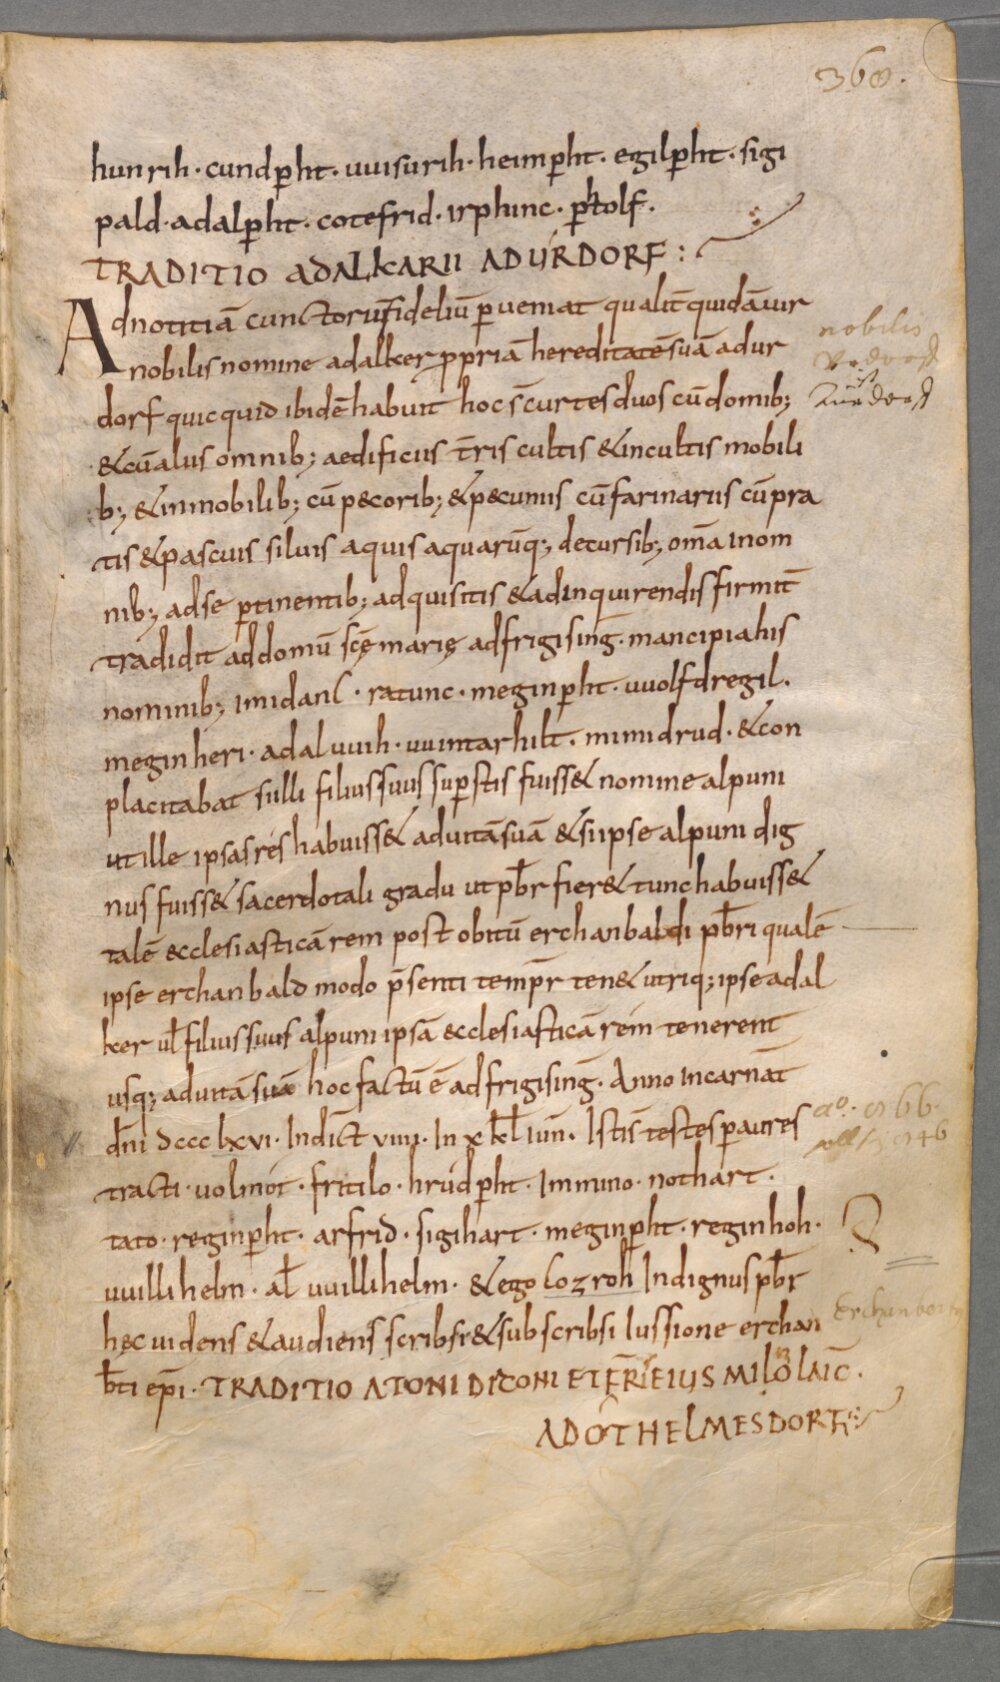 368.
hunrih · cundp̱ht · uuisurih · heimp̱ht · egilp̱ht · sigi
pald · adalp̱ht · cotefrid · irphinc · p̱htolf ·
TRADITIO ADALKARII AD URDORF :
Ad notitiā cunctorū fidelium ꝑueniat qualit̄ quidā uir
nobilis nomine adalker ꝓpriā hereditatē suā ad ur
dorf quicquid ibidē habuit hoc ē curtes duos cū domib;
& cū aliis omnib; aedificiis t̄ris cultis & incultis mobili
b; & inmobilib; cū p&corib; & p&cuniis cū farinariis cū pra
tis & pascuis siluis aquis aquarūq; decursib; om̄a in om
nib; ad se ꝑtinentib; adquisitis & adinquirendis firmit̄
tradidit ad domū sc̄ę marię ad frigising̅ · mancipia his
nominib; imidanc · ratunc · meginp̱ht · uuolfdregil ·
meginheri · adaluuih · uuintarhilt · minidrud · & con
placitabat si illi filius suus suꝑstis fuiss& nomine alpuni
ut ille ipsas res habuiss& ad uitā suā & si ipse alpuni dig
nus fuiss& sacerdotali gradu ut p̄br fier& tunc habuiss&
talē &cclesiasticā rem post obitū erchanbaldi p̄bri qualē
ipse erchanbald modo p̄senti temp̄r ten& utriq; ipse adal
ker ul̄ filius suus alpuni ipsā &cclesiasticā rem tenerent
usq; ad uitā suā hoc factū ē ad frigising̅ · Anno incarnat̄
dn̄i dccc lxvi · Indict̄ viiii · In x kl̄ iun̄ · Isti s̄ testes p̱ aures
tracti · uolmot · fritilo · hrudp̱ht · Immino · nothart ·
tato · reginp̱ht · arfrid · sigihart · meginp̱ht · reginhoh ·
uuillihelm · al̄ uuillihelm · & ego cozroh Indignus p̄br
hęc uidens & audiens scribsi & subscribsi Iussione erchan
b̄ti ep̄i · TRADITIO ATONI DIACONI ET FR̄IS EIUS MILONI LAIC̄ ·
AD OTHELMESDORF :
nobilis